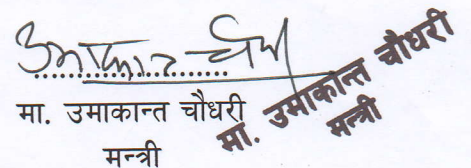 उमाकान्त चौधरी
मा. उमाकान्त चौधरी
मन्त्री
मा. उमाकान्त चौधरी
मन्त्री